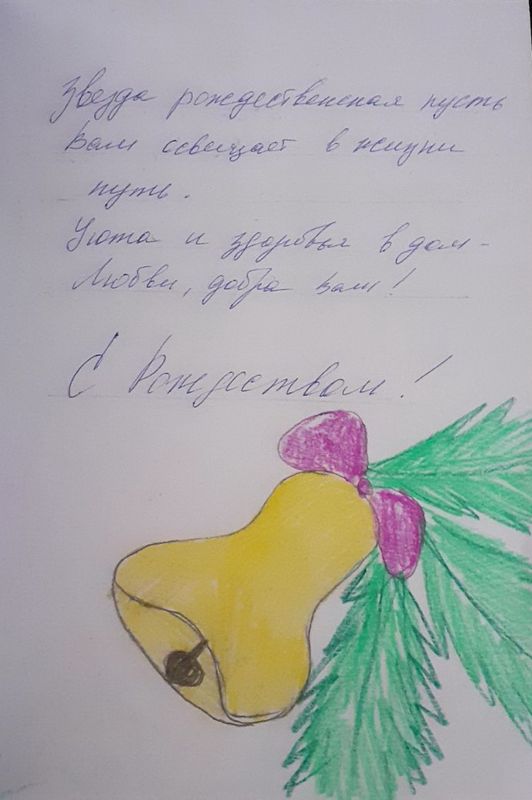 Звезда рождественская пусть
Вам освещает в жизни
путь.
Уюта и здоровья в дом-
Любви, добра вам!
С Рождеством!